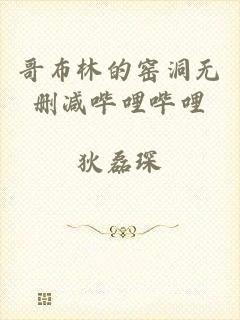 哥布林的窑洞无
删减哔哩哔哩
狄磊琛